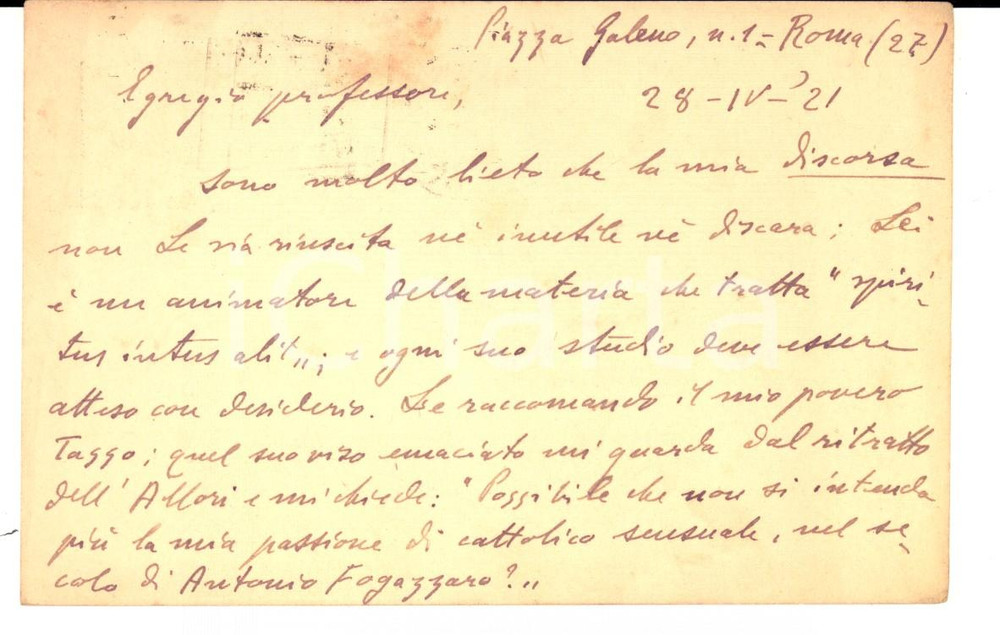 Piazza Galeno, n. 1 = Roma (27)
Egregio professore,
28 - IV - '21
sono molto lieto che la mia discorsa
non Le sia riuscita nè inutile nè discara; Lei
è un animatore della materia che tratta "spiri-
tus intus alit"; e ogni suo studio deve essere
atteso con desiderio. Le raccomando il mio povero
Tasso; quel suo viso emaciato mi guarda dal ritratto
dell'Allori e mi chiede: "Possibile che non si intenda
più la mia passione di cattolico sensuale, nel se-
colo di Antonio Fogazzaro?"
iCharta